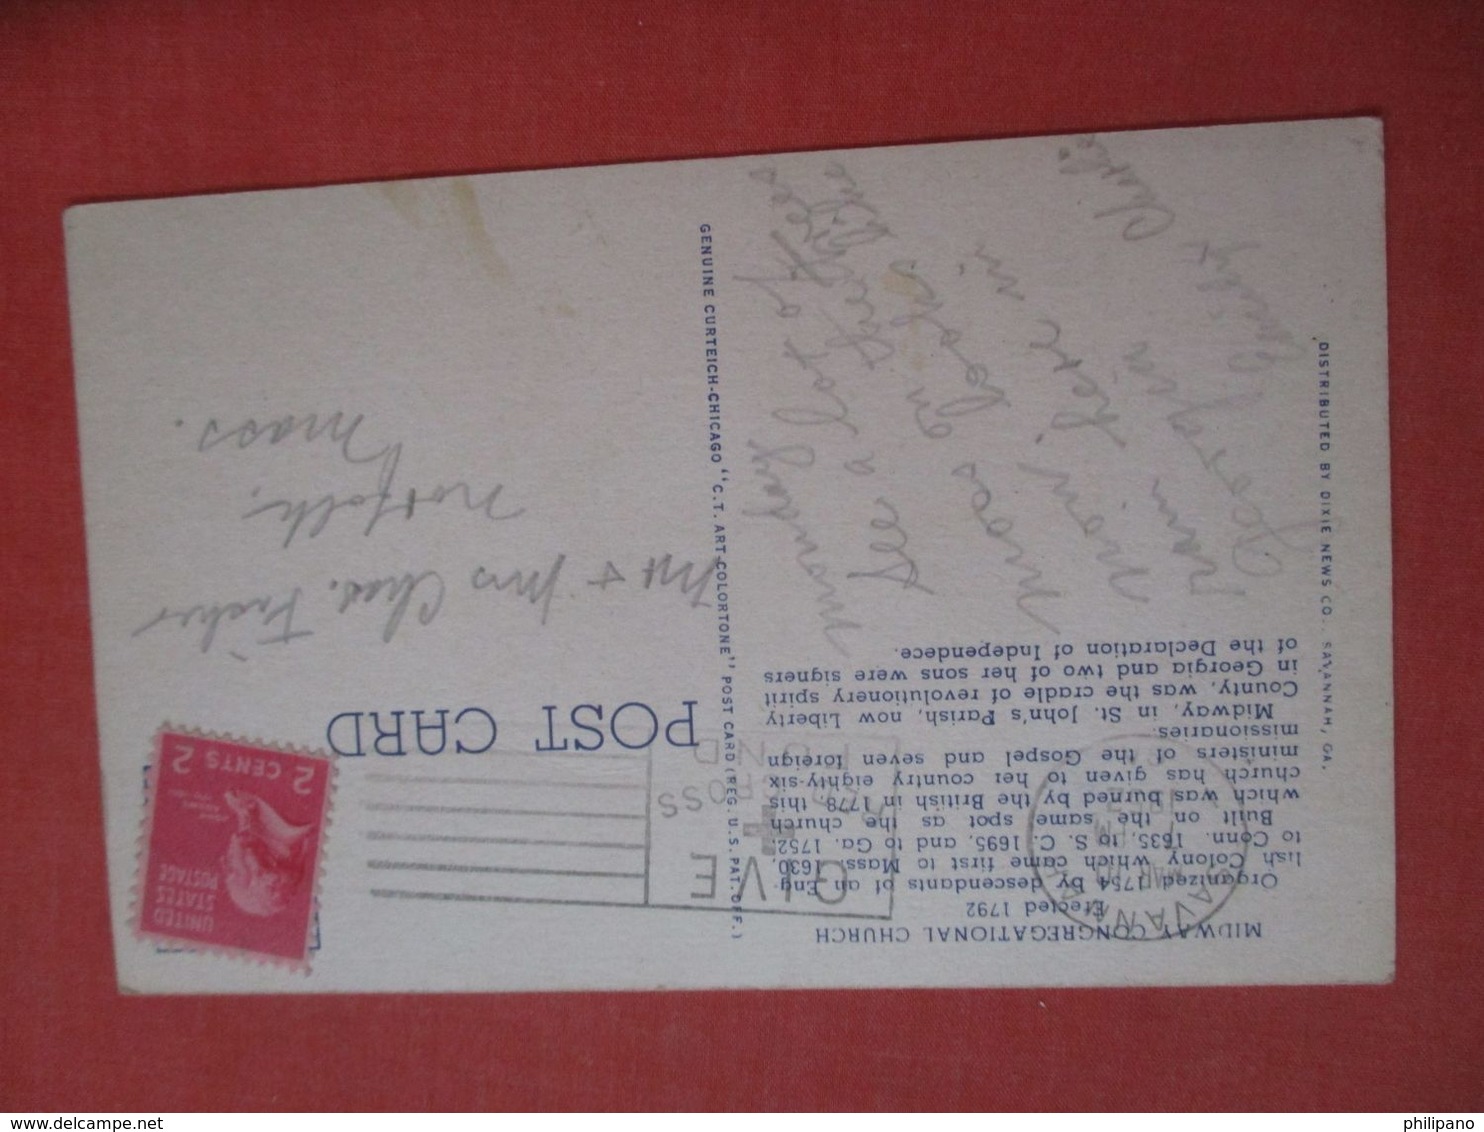 MIDWAY CONGREGATIONAL CHURCH
Erected 1792
Organized 1754 by descendants of an Eng-
lish Colony which came first to Mass. 1630,
to Conn. 1635, to S. C. 1695, and to Ga. 1752.
Built on the same spot as the church
which was burned by the British in 1778 this
church has given to her country eighty-six
ministers of the Gospel and seven foreign
missionaries.
Midway, in St. John's Parish, now Liberty
County, was the cradle of revolutionery spirit
in Georgia and two of her sons were signers
of the Declaration of Independece.
Monday
See a lot of
moss on the trees
Now looks like
rain here in
Georgia
DISTRIBUTED BY DIXIE NEWS CO., SAVANNAH, GA.
GENUINE CURTEICH-CHICAGO "C.T. ART-COLORTONE" POST CARD (REG. U.S. PAT. OFF.)
SAVANNAH
MAR 10
PM
GIVE
CROSS
FUND
POST CARD
UNITED
STATES
POSTAGE
2 CENTS 2
Mr & Mrs Chas.
Norfolk,
Mass.
philipano